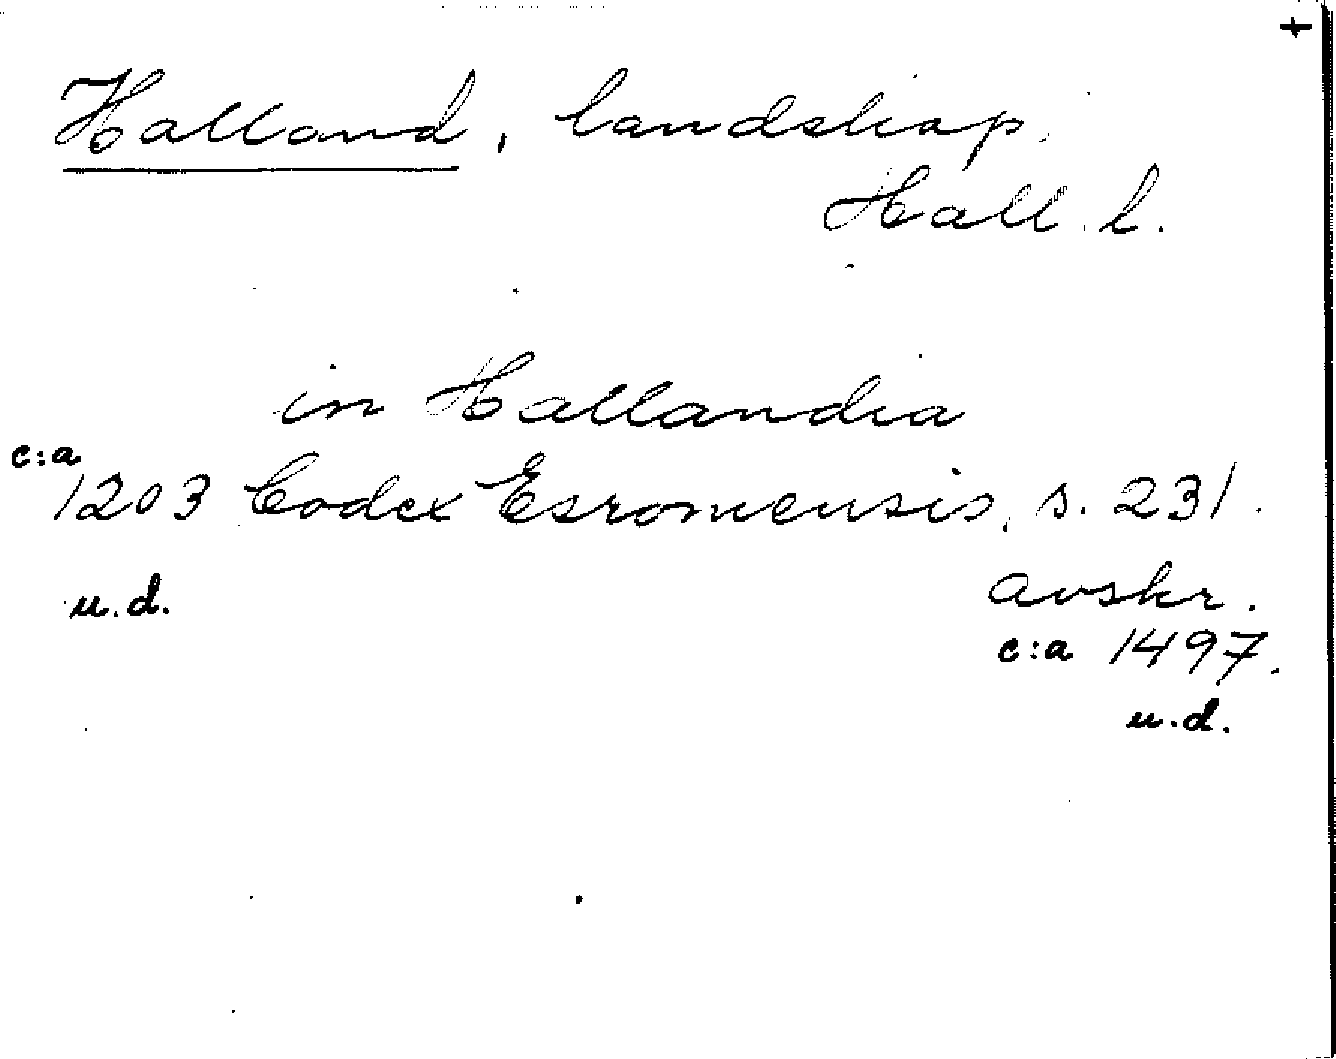 +
Halland, landskap.
Hall. l.
in Hallandia
c:a
1203 Codex Esromensis, s. 231.
u.d. avskr.
c:a 1497.
u.d.